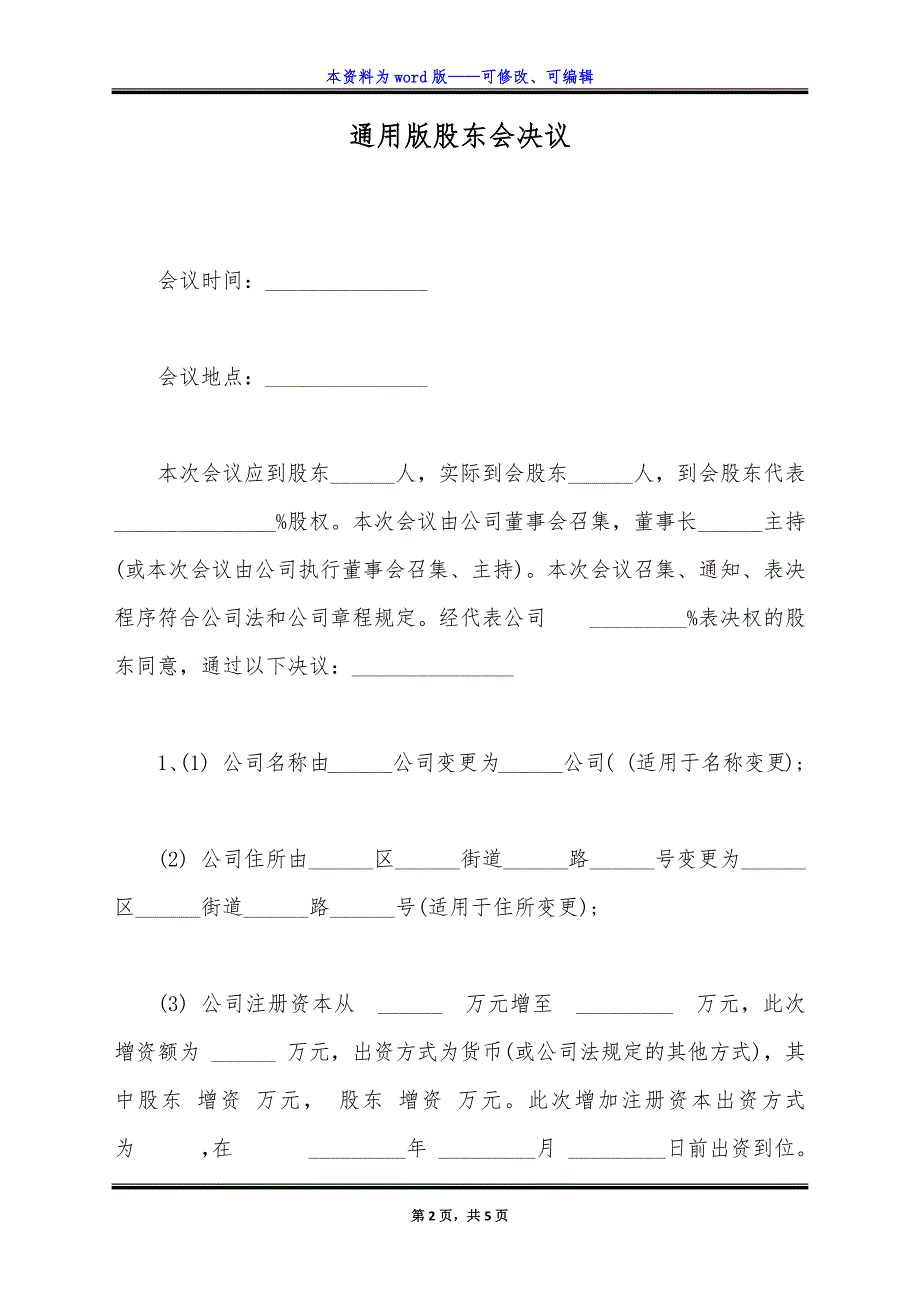 本资料为 word 版——可修改、可编辑
通用版股东会决议
会议时间：_______________
会议地点：_______________
本次会议应到股东______人，实际到会股东______人，到会股东代表
_______________%股权。本次会议由公司董事会召集，董事长______主持
(或本次会议由公司执行董事会召集、主持)。本次会议召集、通知、表决
程序符合公司法和公司章程规定。经代表公司 _________%表决权的股
东同意，通过以下决议：_______________
1、(1) 公司名称由______公司变更为______公司( (适用于名称变更);
(2) 公司住所由______区______街道______路______号变更为______
区______街道______路______号(适用于住所变更);
(3) 公司注册资本从 ______ 万元增至 _________ 万元，此次
增资额为 ______ 万元，出资方式为货币(或公司法规定的其他方式)，其
中股东 增资 万元， 股东 增资 万元。此次增加注册资本出资方式
为 ,在 _________年 _________月 _________日前出资到位。
第 2 页，共 5 页